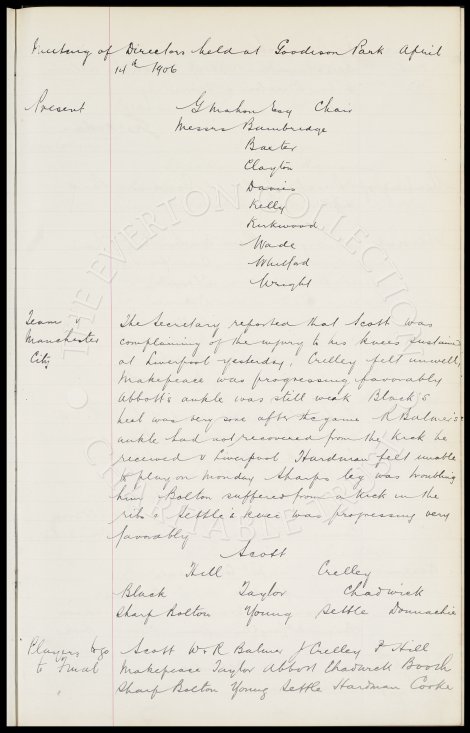 Meeting of Directors held at Goodison Park April
14th 1906
Present G Mahon Esq Chair
Messrs Bainbridge
Baxter
Clayton
Davies
Kelly
Kirkwood
Wade
Whitford
Wright
Team v The Secretary reported that Scott was
Manchester complaining of the injury to his knees sustained
City at Liverpool yesterday, Crelley felt unwell,
Makepeace was progressing favorably
Abbott's ankle was still weak Black's
heel was very sore after the game R Balmer's
ankle had not recovered from the kick he
received v Liverpool Hardman felt unable
to play on Monday Sharps leg was troubling
him, Bolton suffered from a kick in the
ribs & Settle's knee was progressing very
favorably
Scott
Hill Crelley
Black Taylor Chadwick
Sharp Bolton Young Settle Donnachie
Players to go Scott W & R Balmer J Crelley P Hill
to Final Makepeace Taylor Abbott Chadwick Booth
Sharp Bolton Young Settle Hardman Cooke
© THE EVERTON COLLECTION
CHARITABLE TRUST